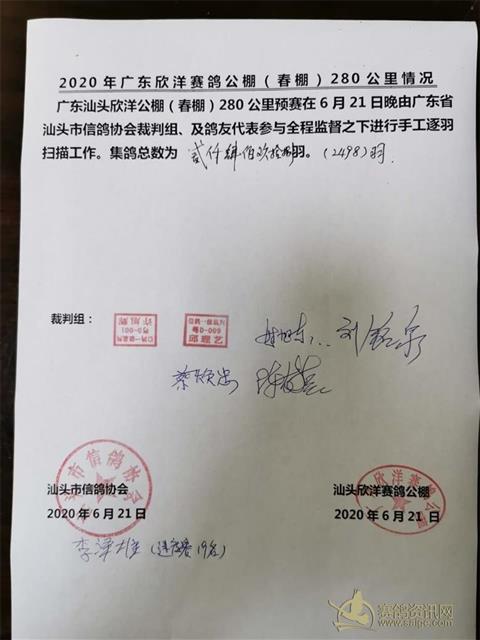 2020年广东欣洋赛鸽公棚（春棚）280公里情况
广东汕头欣洋公棚（春棚）280公里预赛在6月21日晚由广东省
汕头市信鸽协会裁判组、及鸽友代表参与全程监督之下进行手工逐羽
扫描工作。集鸽总数为 贰仟肆佰玖拾捌羽。（2498）羽
裁判组：
刘
汕头市信鸽协会
汕头市信鸽协会
2020年6月21日
汕头欣洋赛鸽公棚
欣洋赛鸽公棚
2020年6月21日
李泽雄
赛鸽资讯网
www.saige.com